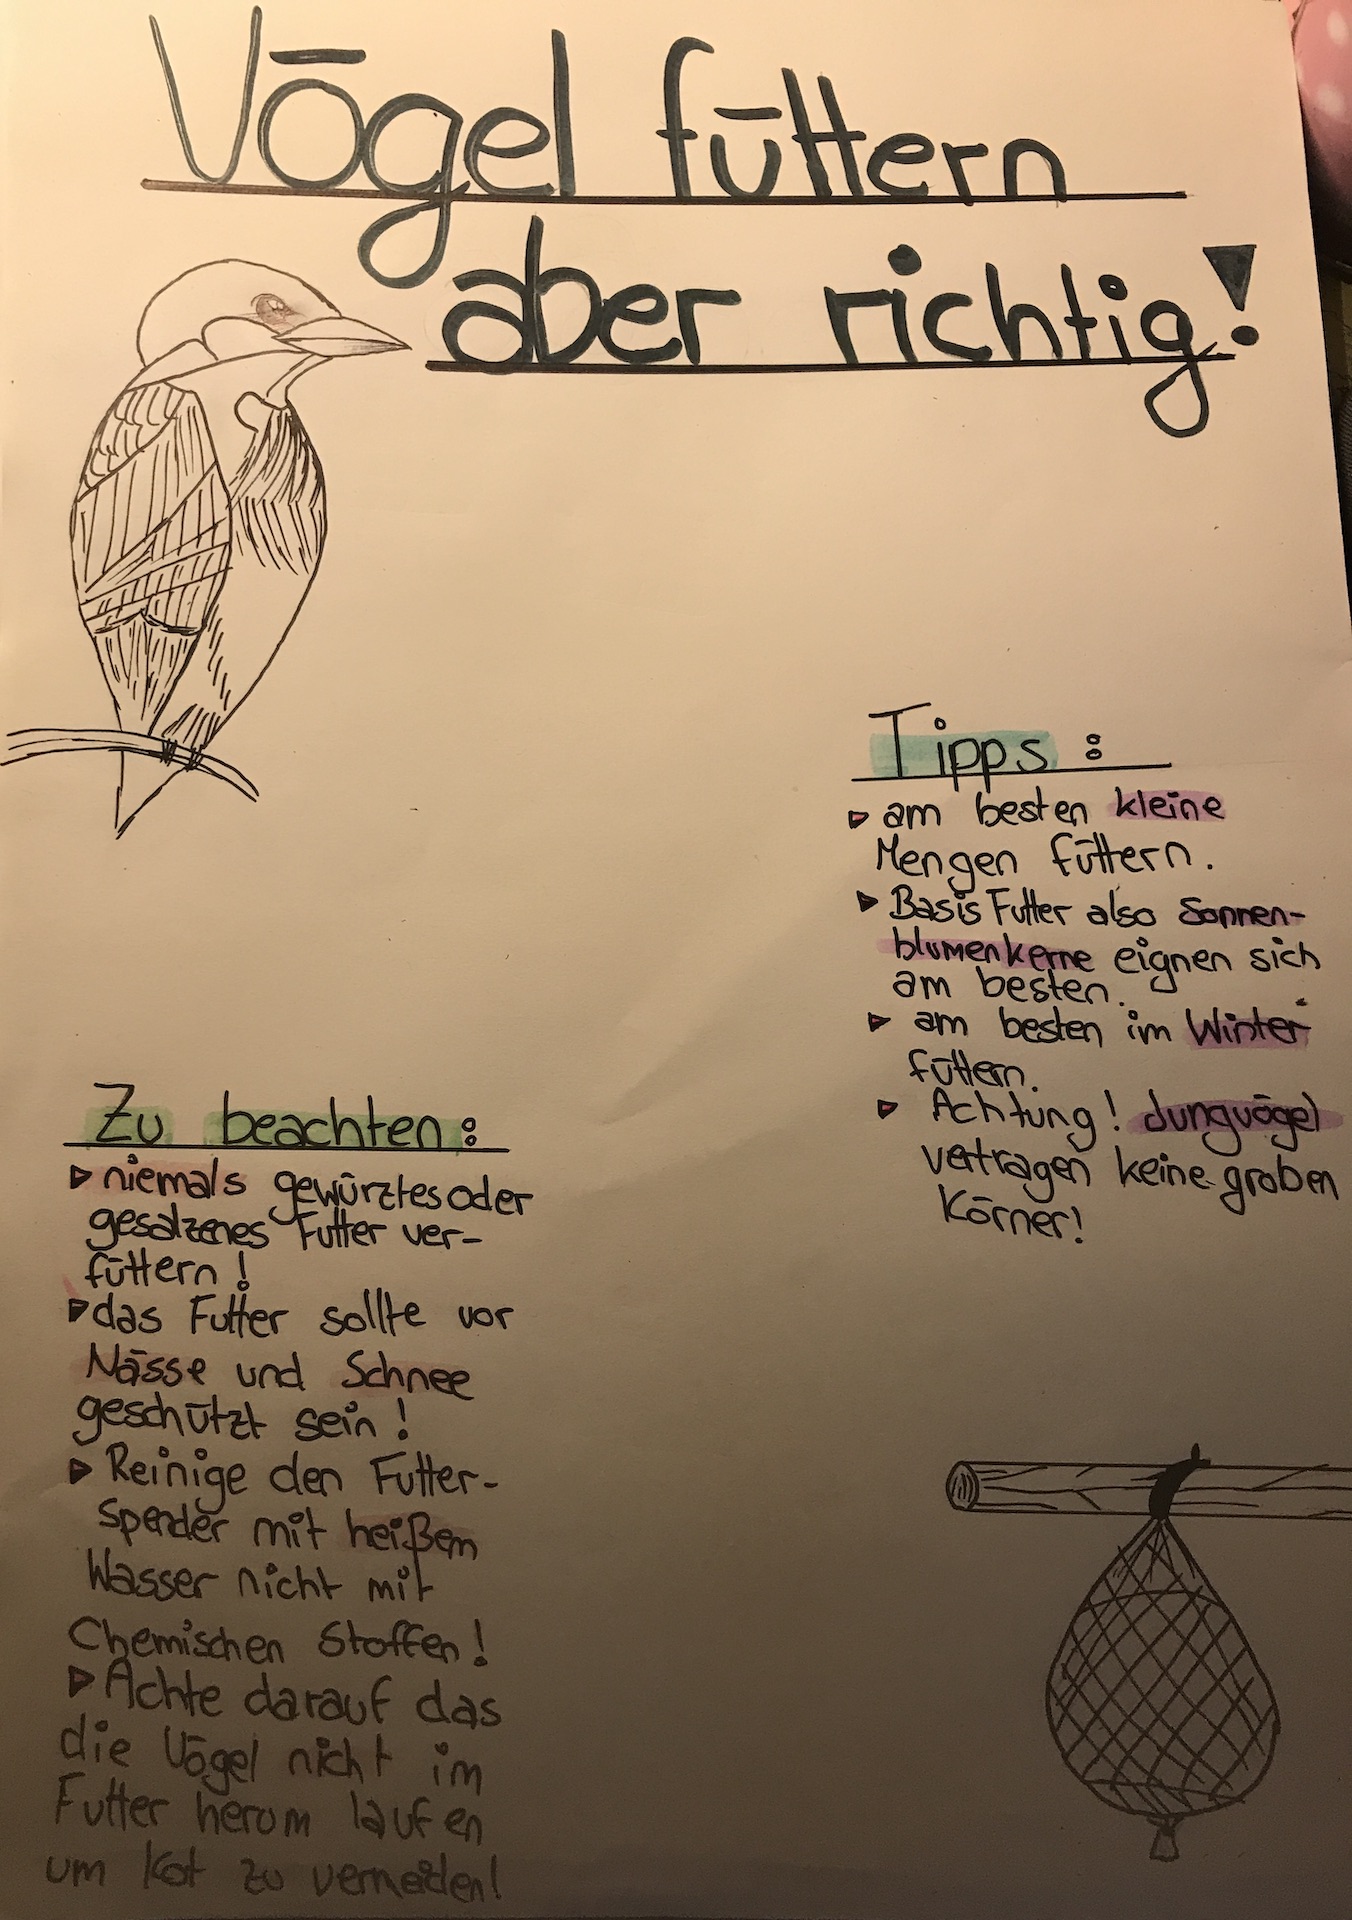 Vögel füttern
aber richtig!
Tipps:
am besten kleine
Mengen füttern.
Basis Futter also Sonnen-
blumenkerne eignen sich
am besten.
am besten im Winter
füttern.
Achtung! Jungvögel
vertragen keine groben
Körner!
Zu beachten:
niemals gewürztes oder
gesalzenes Futter ver-
füttern!
das Futter sollte vor
Nässe und Schnee
geschützt sein!
Reinige den Futter-
spender mit heißem
Wasser nicht mit
Chemischen Stoffen!
Achte darauf das
die Vögel nicht im
Futter herum laufen
um Kot zu vermeiden!